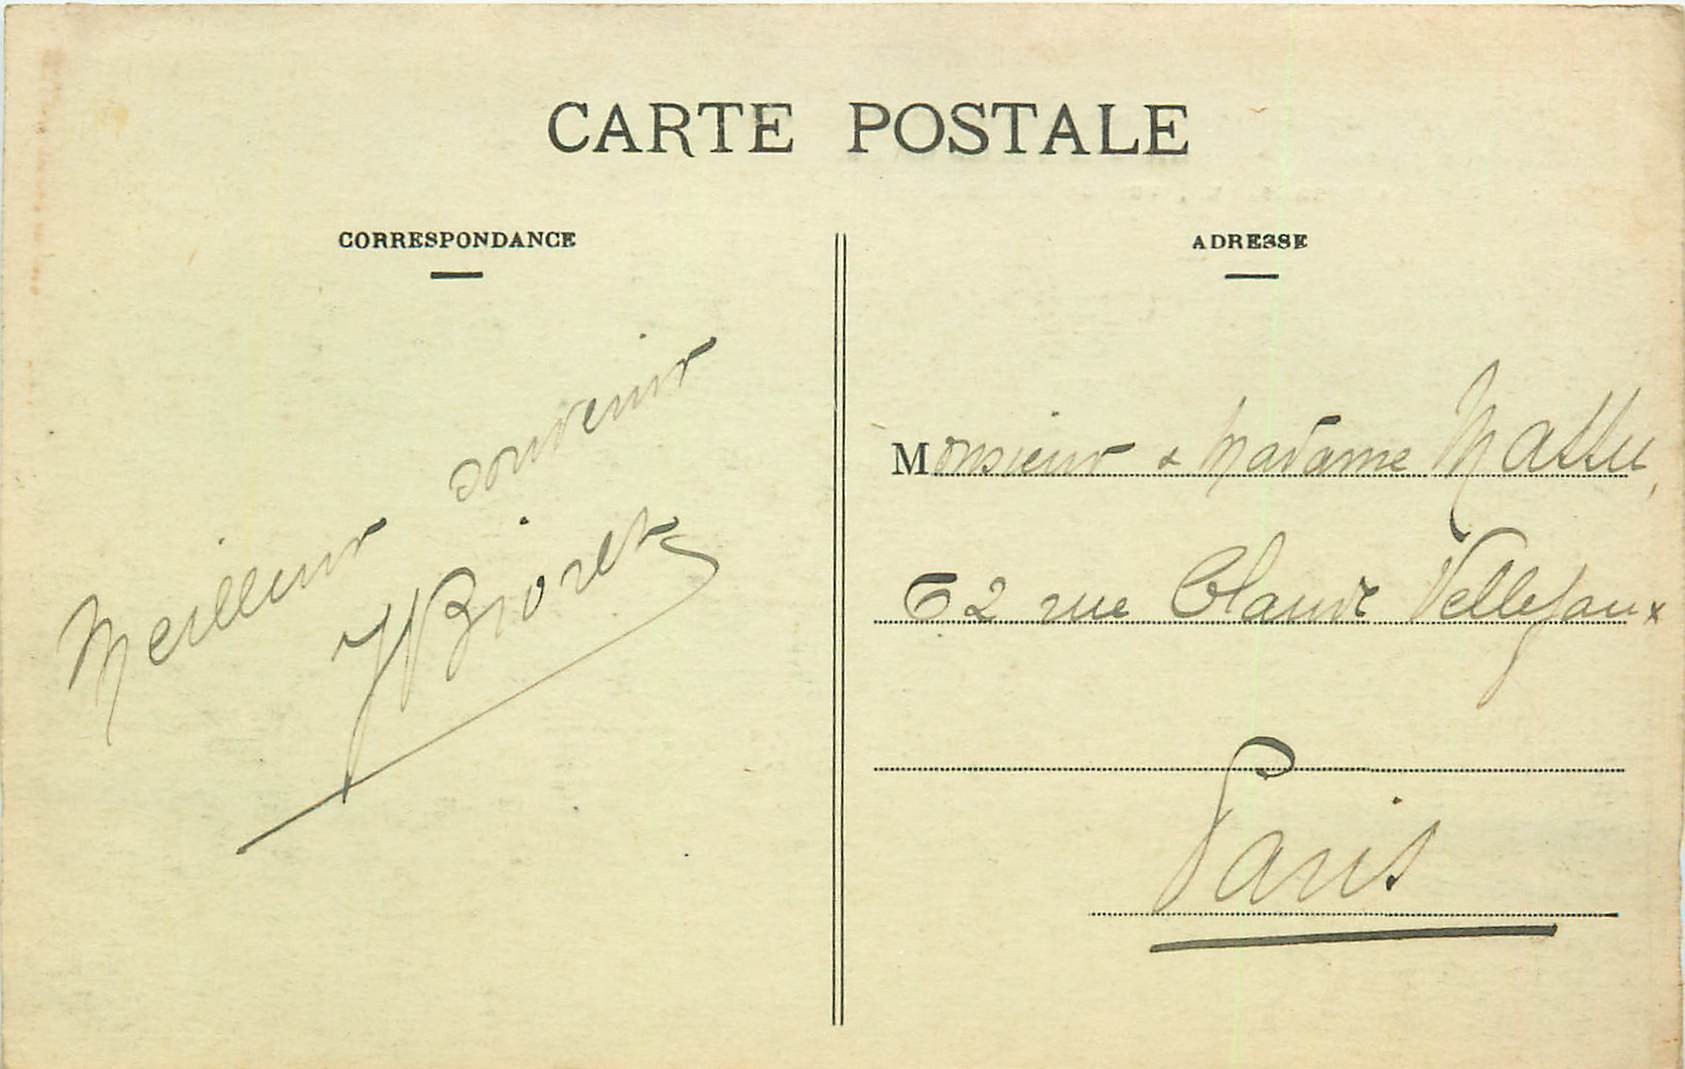 CARTE POSTALE
CORRESPONDANCE
Meilleur souvenir
ADRESSE
Monsieur & Madame
62 rue Claude Vellefaux
Paris